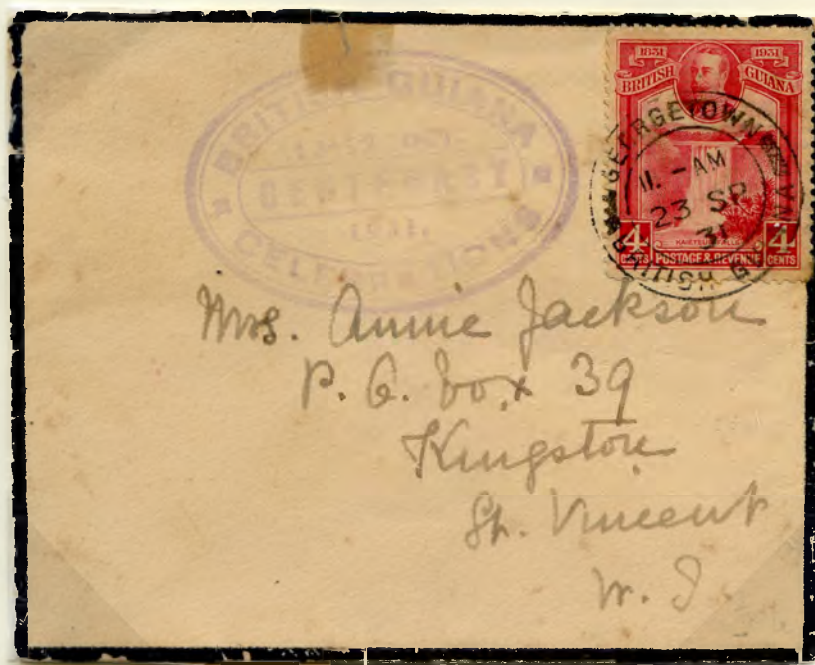 BRITISH GUIANA
CENTENARY
1931.
CELEBRATIONS
1831 1931
BRITISH GUIANA
KAIETEUR FALLS
4 CENTS POSTAGE & REVENUE 4 CENTS
GEORGETOWN
11.-AM
23 SP
31
BRITISH GUIANA
Mrs. Annie Jackson
P. O. box 39
Kingston
St. Vincent
W. I